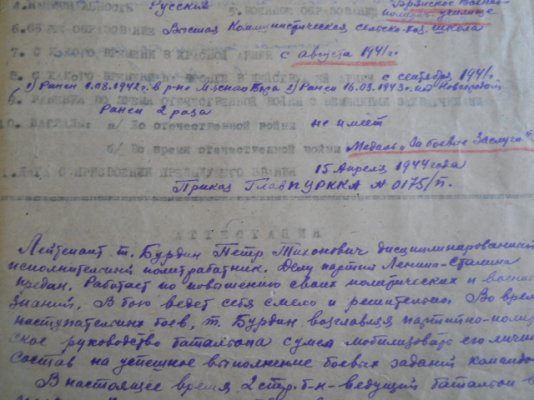 4. НАЦИОНАЛЬНОСТЬ Русский 5. ВОЕННОЕ ОБРАЗОВАНИЕ Брянское Военно-
политич. училище
6. ОБЩЕЕ ОБРАЗОВАНИЕ Высшая Коммунистическая сельско-хоз. школа
7. С КАКОГО ВРЕМЕНИ В КРАСНОЙ АРМИИ с августа 1941 г.
8. С КАКОГО ВРЕМЕНИ В ДЕЙСТВУЮЩЕЙ АРМИИ с сентября 1941 г.
1) Ранен 1.08.1942 г. в р-не Мясного Бора 2) Ранен 16.03.1943 г. под Новгородом
9. РАНЕНИЯ ВО ВРЕМЯ ОТЕЧЕСТВЕННОЙ ВОЙНЫ
Ранен 2 раза
10. НАГРАДЫ: а/ До отечественной войны не имеет
б/ Во время отечественной войны Медаль "За боевые Заслуги"
1. ДАТА О ПРИСВОЕНИИ ПРЕДЫДУЩЕГО ЗВАНИЯ 15 Апреля 1944 года
Приказ ГлавПУРККА № 0175/п.
АТТЕСТАЦИЯ
Лейтенант т. Бурдин Петр Тихонович дисциплинированный
исполнительный политработник. Делу партии Ленина-Сталина
предан. Работает по повышению своих политических и военн
знаний. В бою ведет себя смело и решительно. Во время
наступательных боев, т. Бурдин возглавляя партийно-полит
ское руководство батальона сумел мобилизовать его личн
состав на успешное выполнение боевых заданий командо
В настоящее время 2 стр. б-н - ведущий батальон в